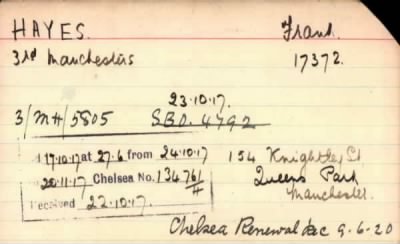 HAYES. Frank.
3rd Manchesters 17372.
23.10.17.
3/MH/5805 S.B.O. 4792
17.10.17 at 27.6 from 24.10.17
20.11.17 Chelsea No. 134761/H
Received 22.10.17.
154 Knightley St
Queens Park
Manchester.
Chelsea Renewal dec 9-6-20